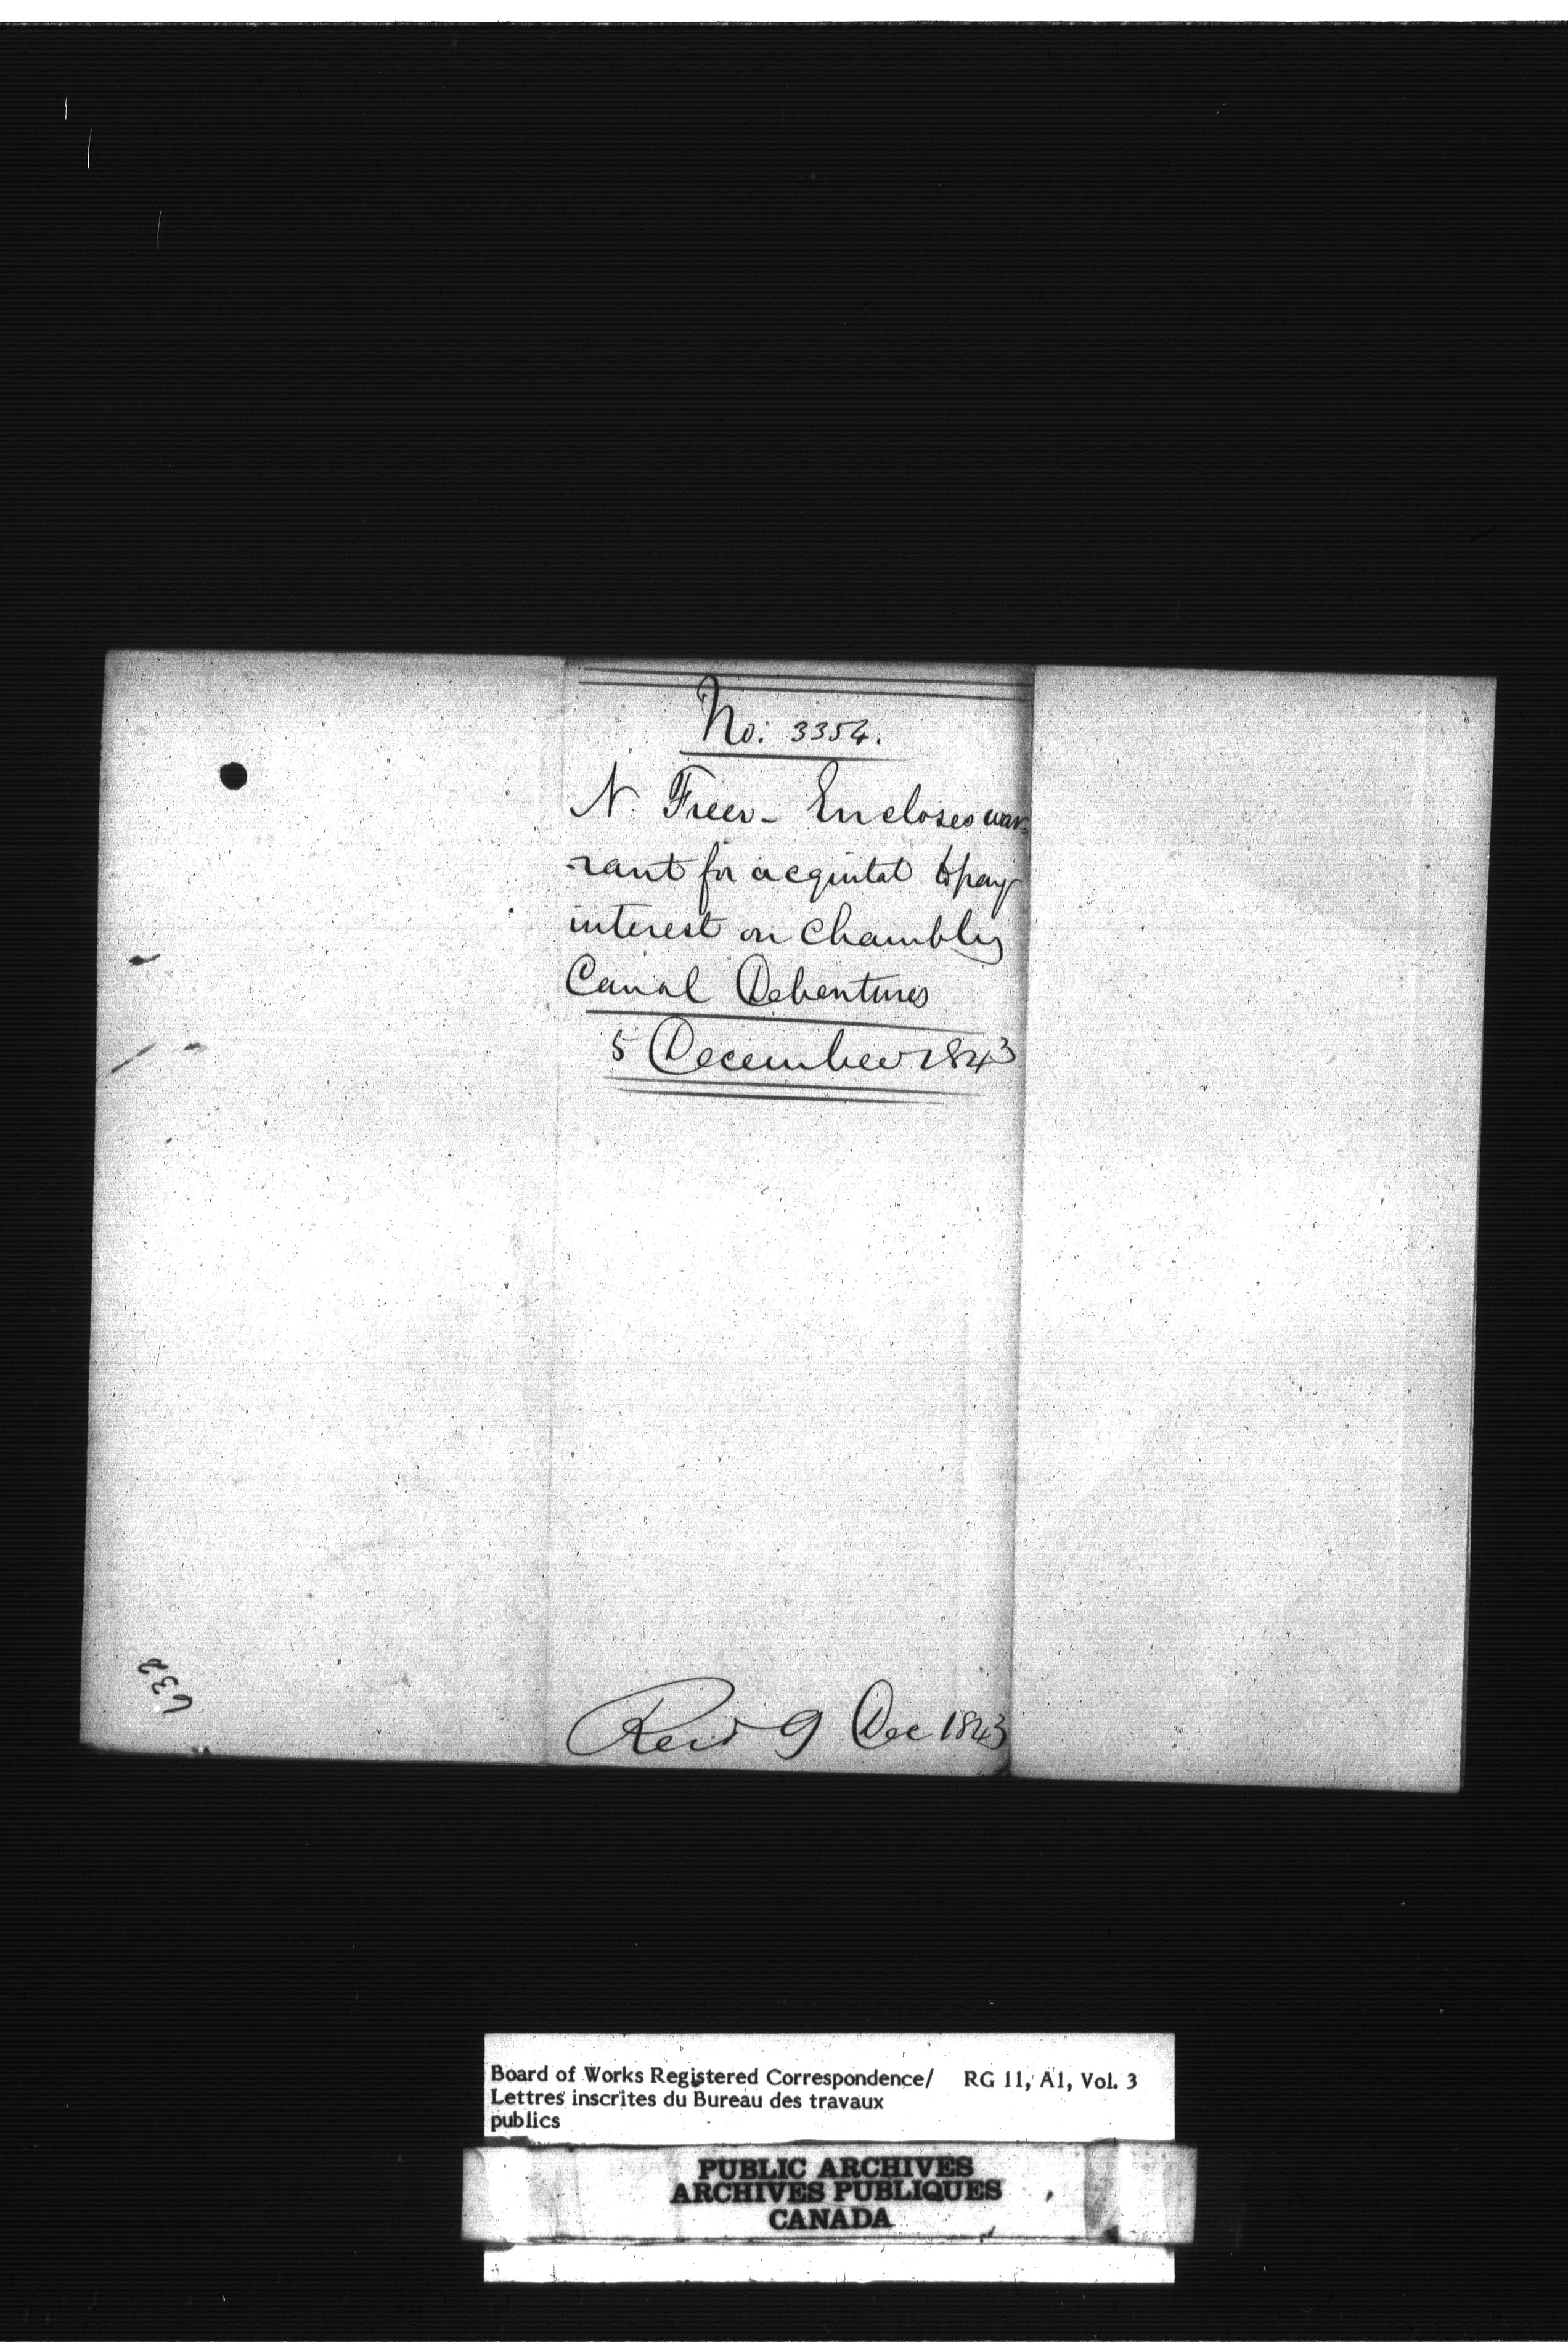 No: 3354.
N. Freer - Encloses war=
rant for acquital to pay
interest on Chambly
Canal Debentures
5 December 1843
632
Recd 9 Dec 1843
Board of Works Registered Correspondence/ RG 11, A1, Vol. 3
Lettres inscrites du Bureau des travaux
publics
PUBLIC ARCHIVES
ARCHIVES PUBLIQUES
CANADA